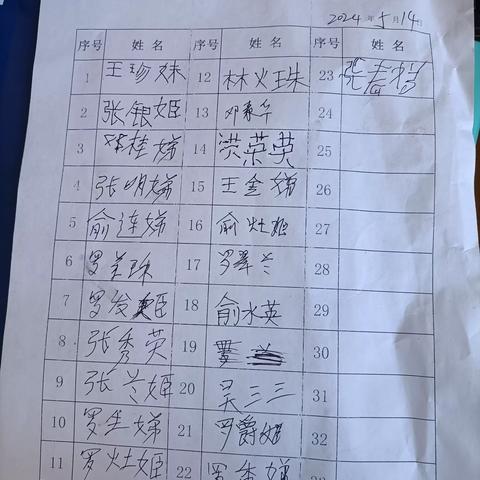 2024年5月14日
序号 姓名 序号 姓名 序号 姓名
1 王珍妹 12 林火珠 23
2 张银姬 13 邓秉华 24
3 桂娣 14 洪荣英 25
4 张明娣 15 王金娣 26
5 俞连娣 16 俞灶姬 27
6 罗美珠 17 罗翠兰 28
7 罗发姬 18 俞水英 29
8 张秀英 19 30
9 张兰姬 20 吴三三 31
10 罗生娣 21 罗爵姬 32
11 罗灶姬 22 罗秀娣